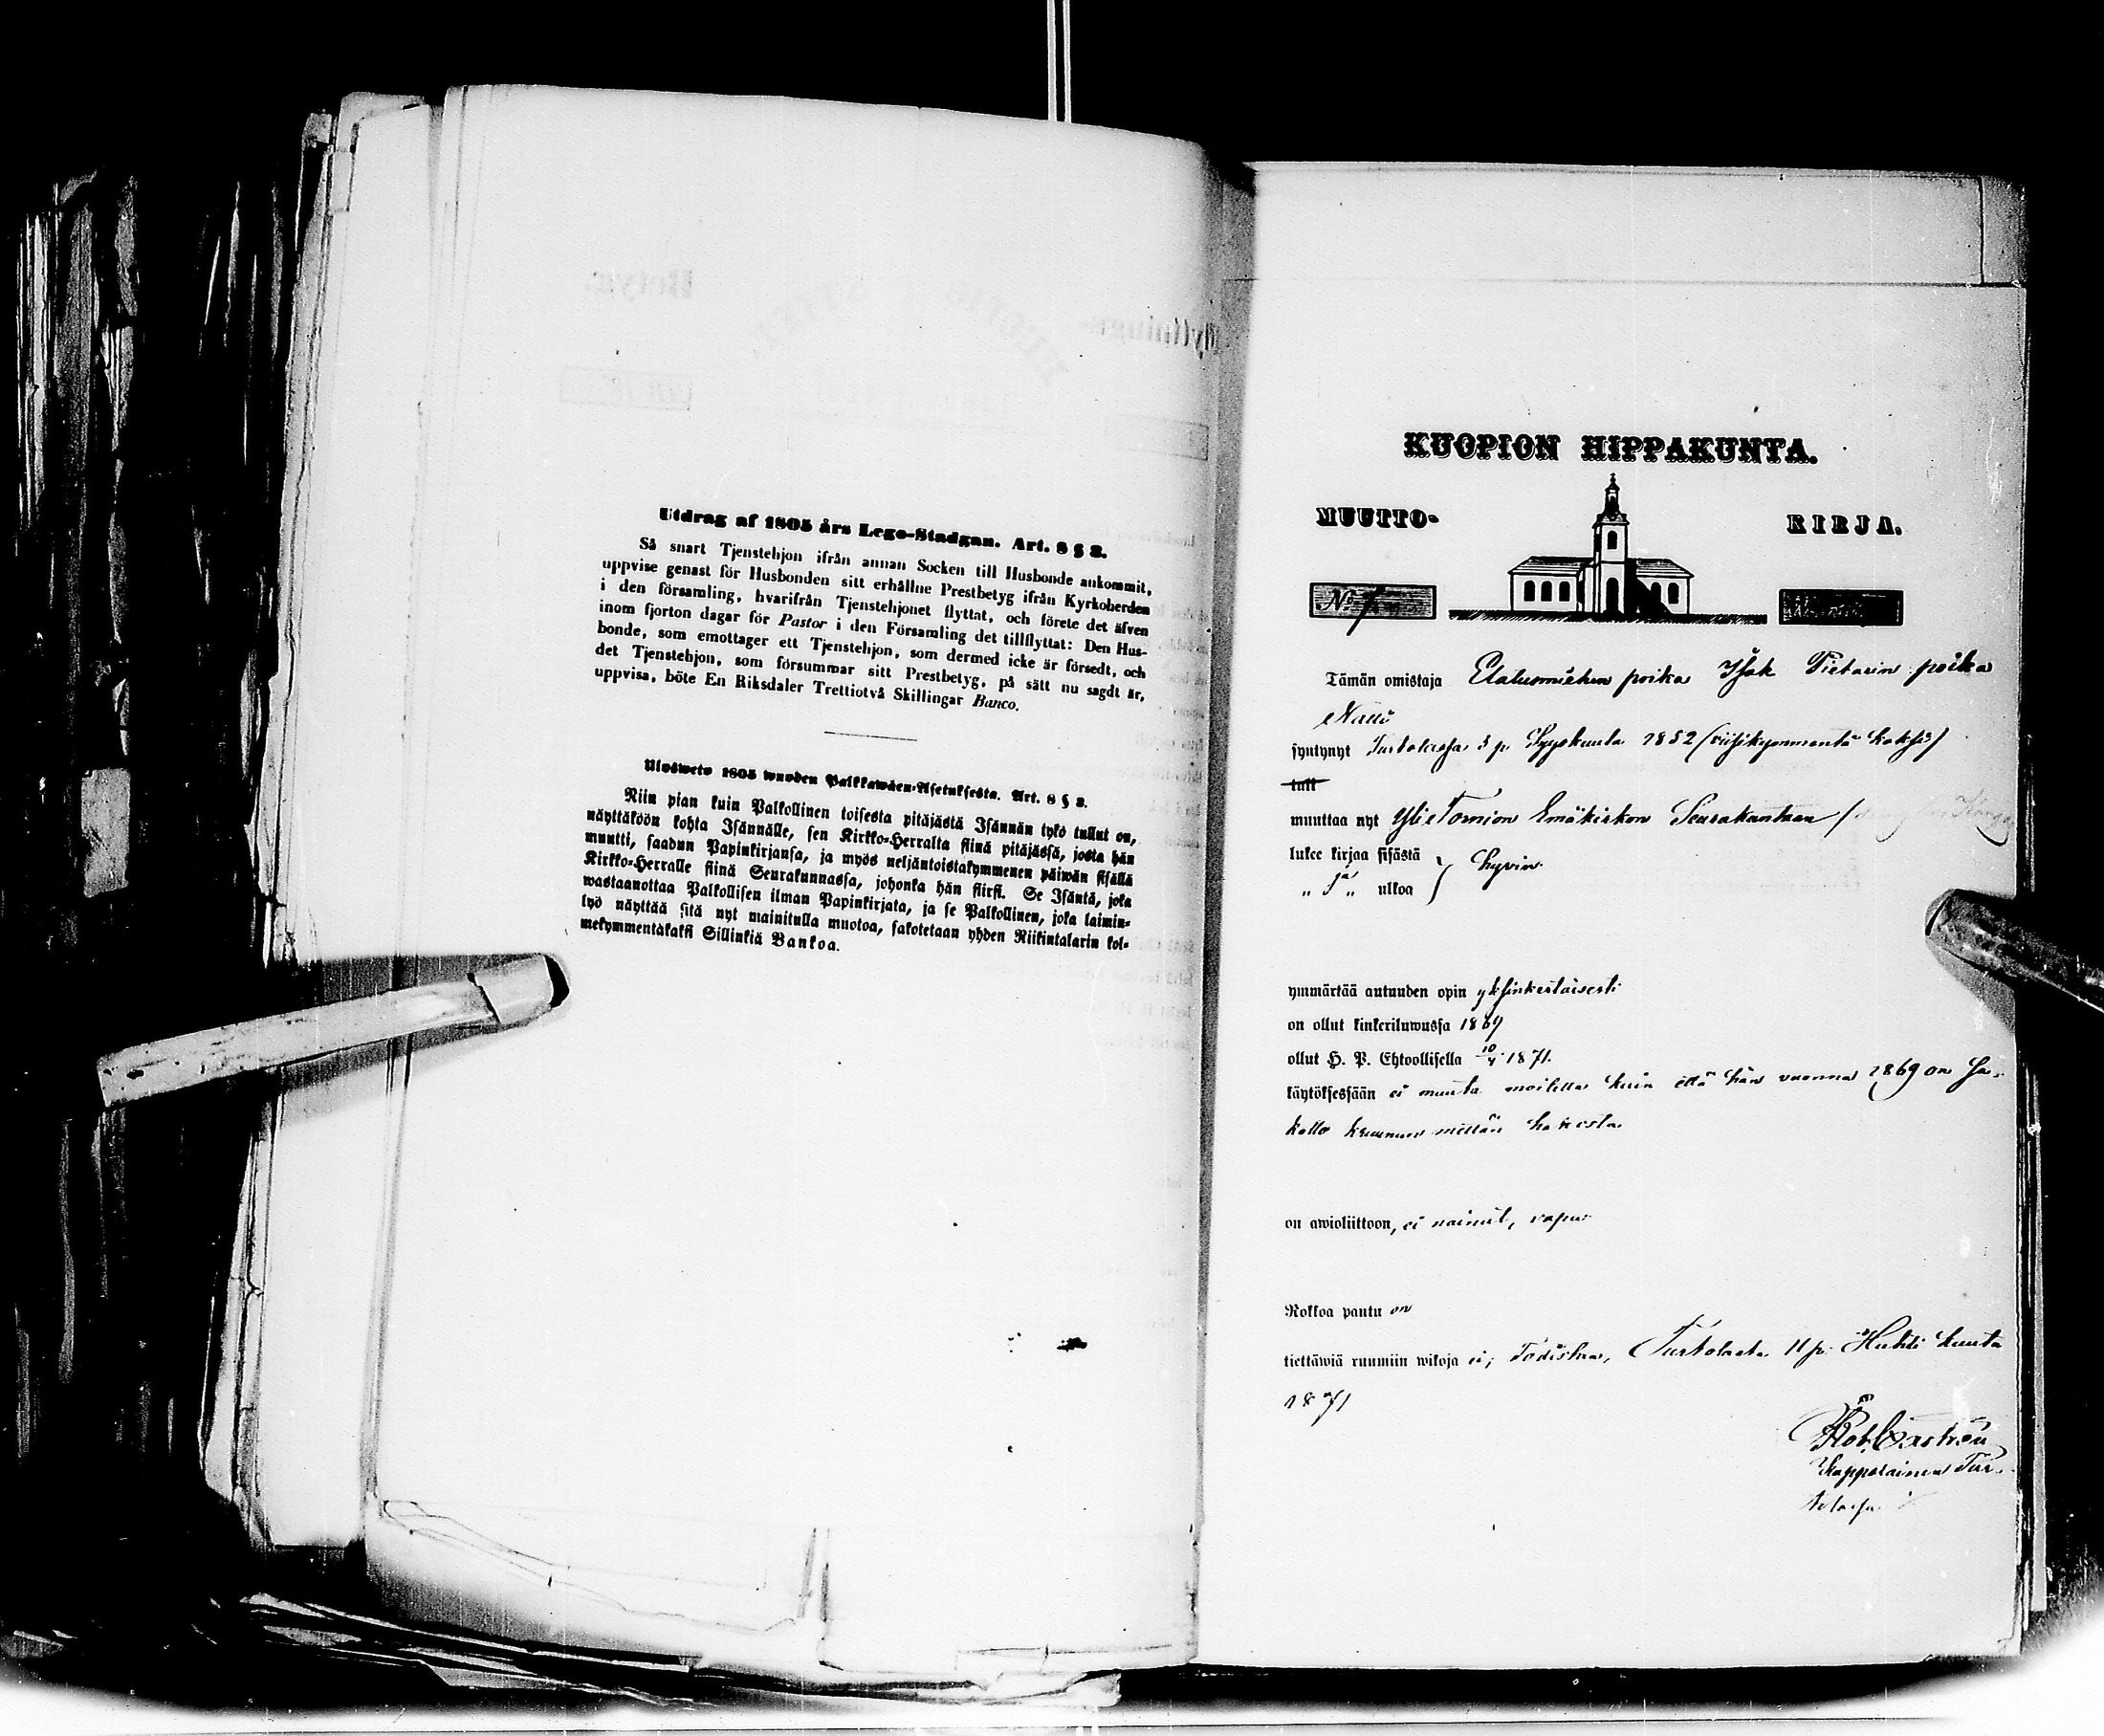 Utdrag af 1805 års Lego-Stadgan. Art. 8 § 8.
Så snart Tjenstehjon ifrån annan Socken till Husbonde ankommit,
uppvise genast för Husbonden sitt erhållne Prestbetyg ifrån Kyrkoherden
i den församling, hvarifrån Tjenstehjonet flyttat, och förete det äfven
inom fjorton dagar för Pastor i den Församling det tillflyttat: Den Hus-
bonde, som emottager ett Tjenstehjon, som dermed icke är försedt, och
det Tjenstehjon, som försummar sitt Prestbetyg, på sätt nu sagdt är,
uppvisa, böte En Riksdaler Trettiotvå Skillingar Banco.
Ulosweto 1805 wuoden Palkkawäen-Asetuksesta. Art. 8 § 8.
Niin pian kuin Palkollinen toisesta pitäjästä Isännän tykö tullut on,
näyttäköön kohta Isännälle, sen Kirkko-Herralta siinä pitäjässä, josta hän
muutti, saadun Papinkirjansa, ja myös neljäntoistakymmenen päiwän sisällä
Kirkko-Herralle siinä Seurakunnassa, johonka hän siirsi. Se Isäntä, joka
wastaanottaa Palkollisen ilman Papinkirjata, ja se Palkollinen, joka laimin-
lyö näyttää sitä nyt mainitulla muotoa, sakotetaan yhden Riikintalarin kol-
mekymmentäkaksi Sillinkiä Bankoa.
KUOPION HIPPAKUNTA.
MUUTTO- KIRJA.
No 7
Tämän omistaja poika Isak Pietarin poika
syntynyt Turtolassa 3 p. Syyskuuta 1852 (viisikymmentä kaksi)
tull
muuttaa nyt Yli Tornion Emäkirkon Seurakuntaan
lukee kirjaa sisästä } hyvin
„ ja „ ulkoa
ymmärtää autuuden opin yksinkertaisesti
on ollut kinkeriluwussa 1869
ollut H. P. Ehtoollisella 10/4 1871.
käytöksessään ei muuta moitetta kuin että hän vuonna 1869 on sa-
kotto kruunun metsän
on awioliittoon, ei nainut, vapaa
Rokkoa pantu on
tiettäwiä ruumiin wikoja ei; Todistaa, Turtolasta 11 p. Huhti kuuta
1871
Kappalainen Tur-
tolassa